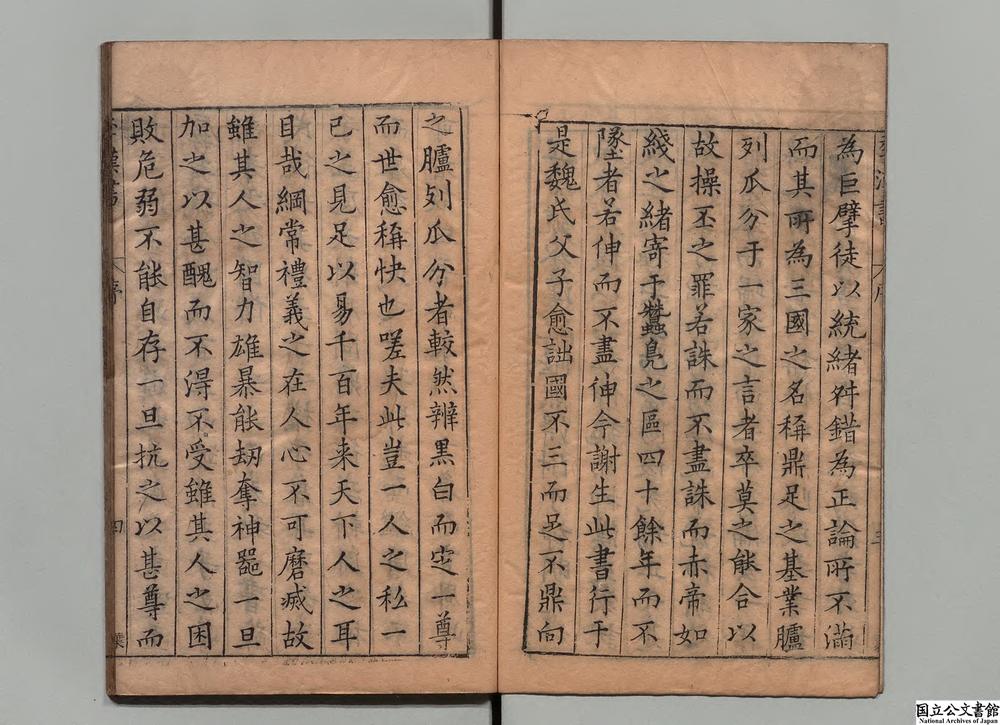 為巨擘徒以統緒舛錯為正論所不滿
而其所為三國之名稱鼎足之基業臚
列瓜分于一家之言者卒莫之能合以
故操丕之罪若誅而不盡誅而赤帝如
綫之緒寄于蠶鳧之區四十餘年而不
墜者若伸而不盡伸今謝生此書行于
是魏氏父子愈詘國不三而足不鼎向
之臚列瓜分者較然辨黑白而定一尊
而世愈稱快也嗟夫此豈一人之私一
己之見足以易千百年来天下人之耳
目哉綱常禮義之在人心不可磨滅故
雖其人之智力雄暴能劫奪神噐一旦
加之以甚醜而不得不受雖其人之困
敗危弱不能自存一旦抗之以甚尊而
序
四
国立公文書館
National Archives of Japan